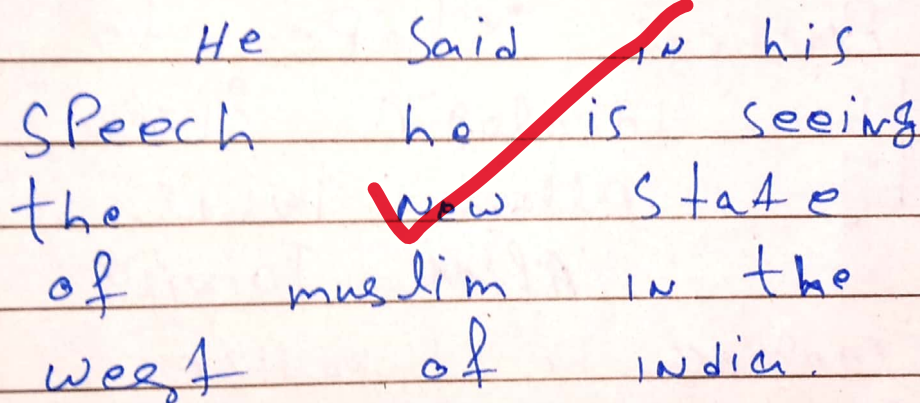 He said in his
speech he is seeing
the new state
of muslim in the
west of india.